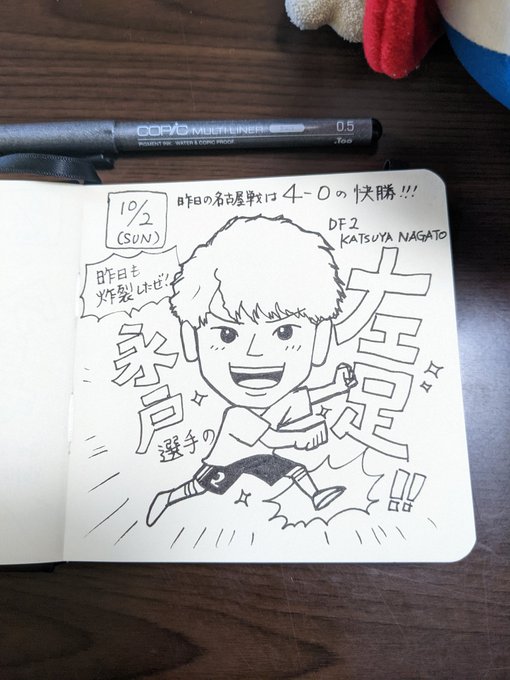 COPIC MULTILINER
0.5
PIGMENT INK. WATER & COPIC PROOF.
.Too
10/2
(SUN)
昨日の名古屋戦は4-0の快勝!!!
DF2
KATSUYA NAGATO
昨日も
炸裂したぜ!
永戸
選手の
左足!!
2